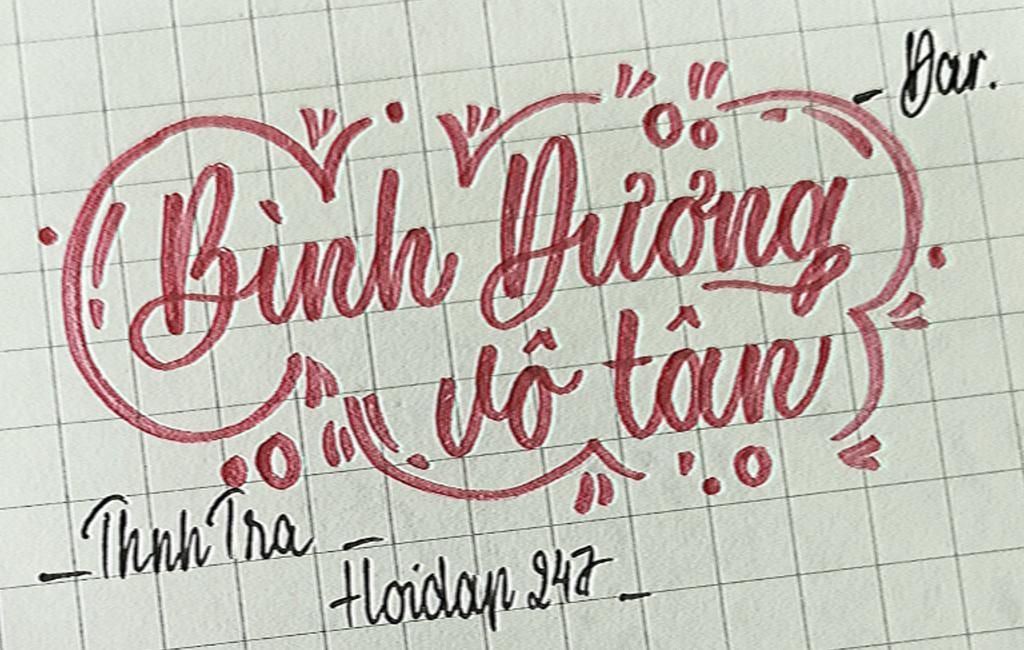 - Dar.
Bình Dưởng
vô tân
- ThnhTra -
Hoidap 247 -